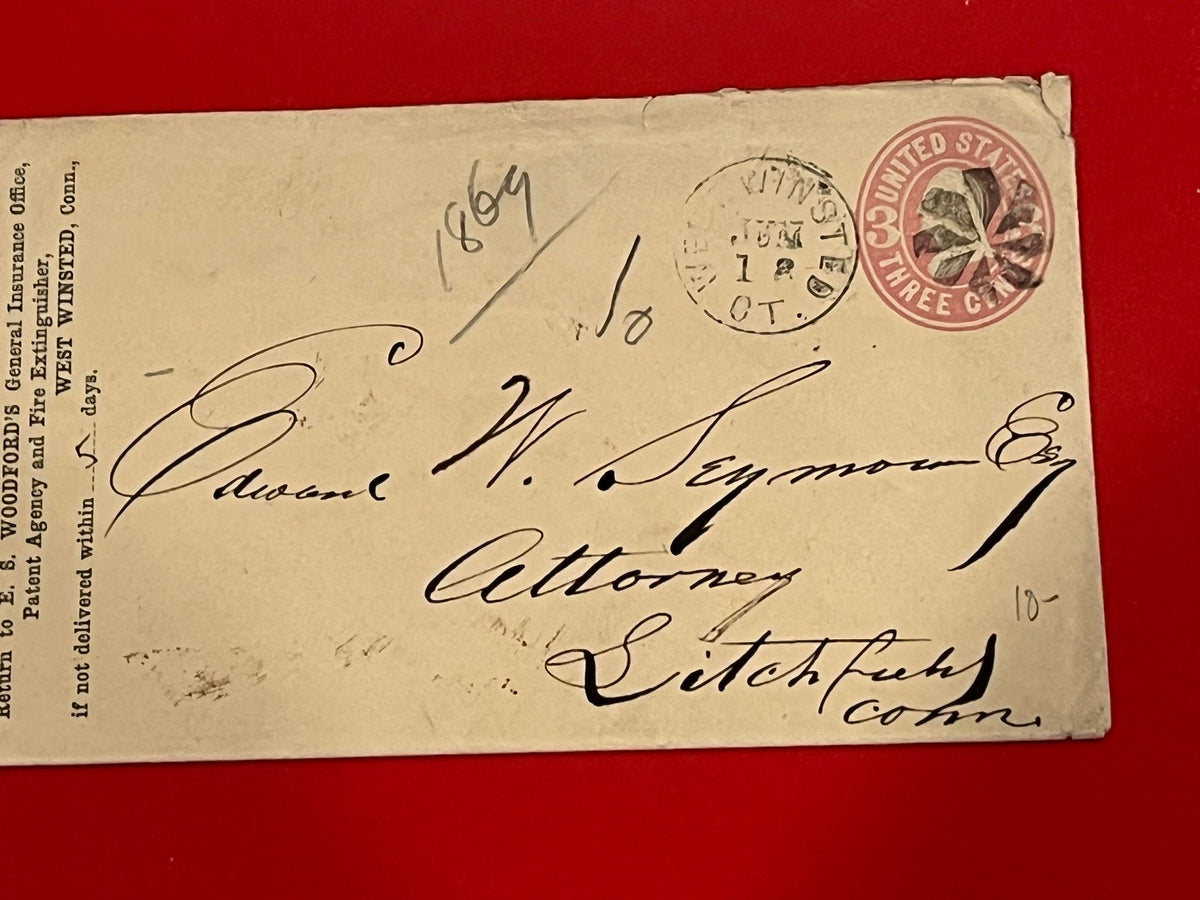 Return to E. S. WOODFORD'S General Insurance Office,
Patent Agency and Fire Extinguisher,
WEST WINSTED, Conn.,
if not delivered within ...5... days.
1869
10
WEST WINSTED
JUN
12
CT.
UNITED STATES
3
THREE CENTS
Edward W. Seymour Esq
Attorney
Litchfield
Conn.
10-